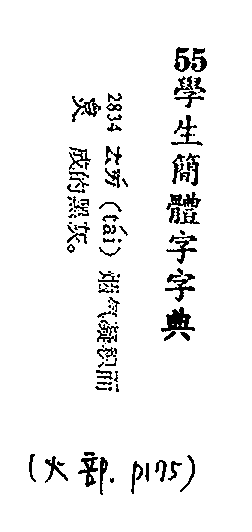 55學生簡體字字典
2834 ㄊㄞˊ (tái) 烟气凝积而
炱 成的黑灰。
(火部. p175)